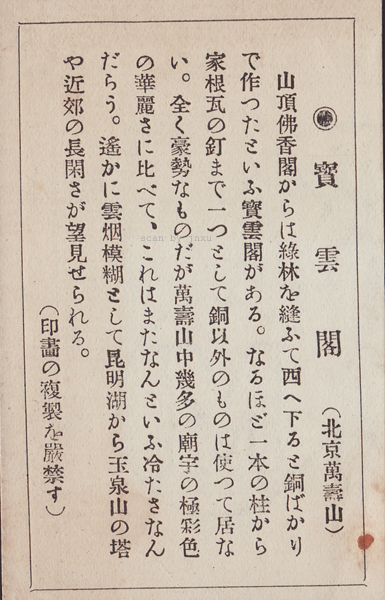 寳雲閣
(北京萬壽山)
山頂佛香閣からは綠林を縫ふて西へ下ると銅ばかり
で作つたといふ寳雲閣がある。なるほど一本の柱から
家根瓦の釘まで一つとして銅以外のものは使つて居な
い。全く豪勢なものだが萬壽山中幾多の廟宇の極彩色
の華麗さに比べて、これはまたなんといふ冷たさなん
だらう。遙かに雲烟模糊として昆明湖から玉泉山の塔
や近郊の長閑さが望見せられる。
(印畵の複製を嚴禁す)
scan by jnxu